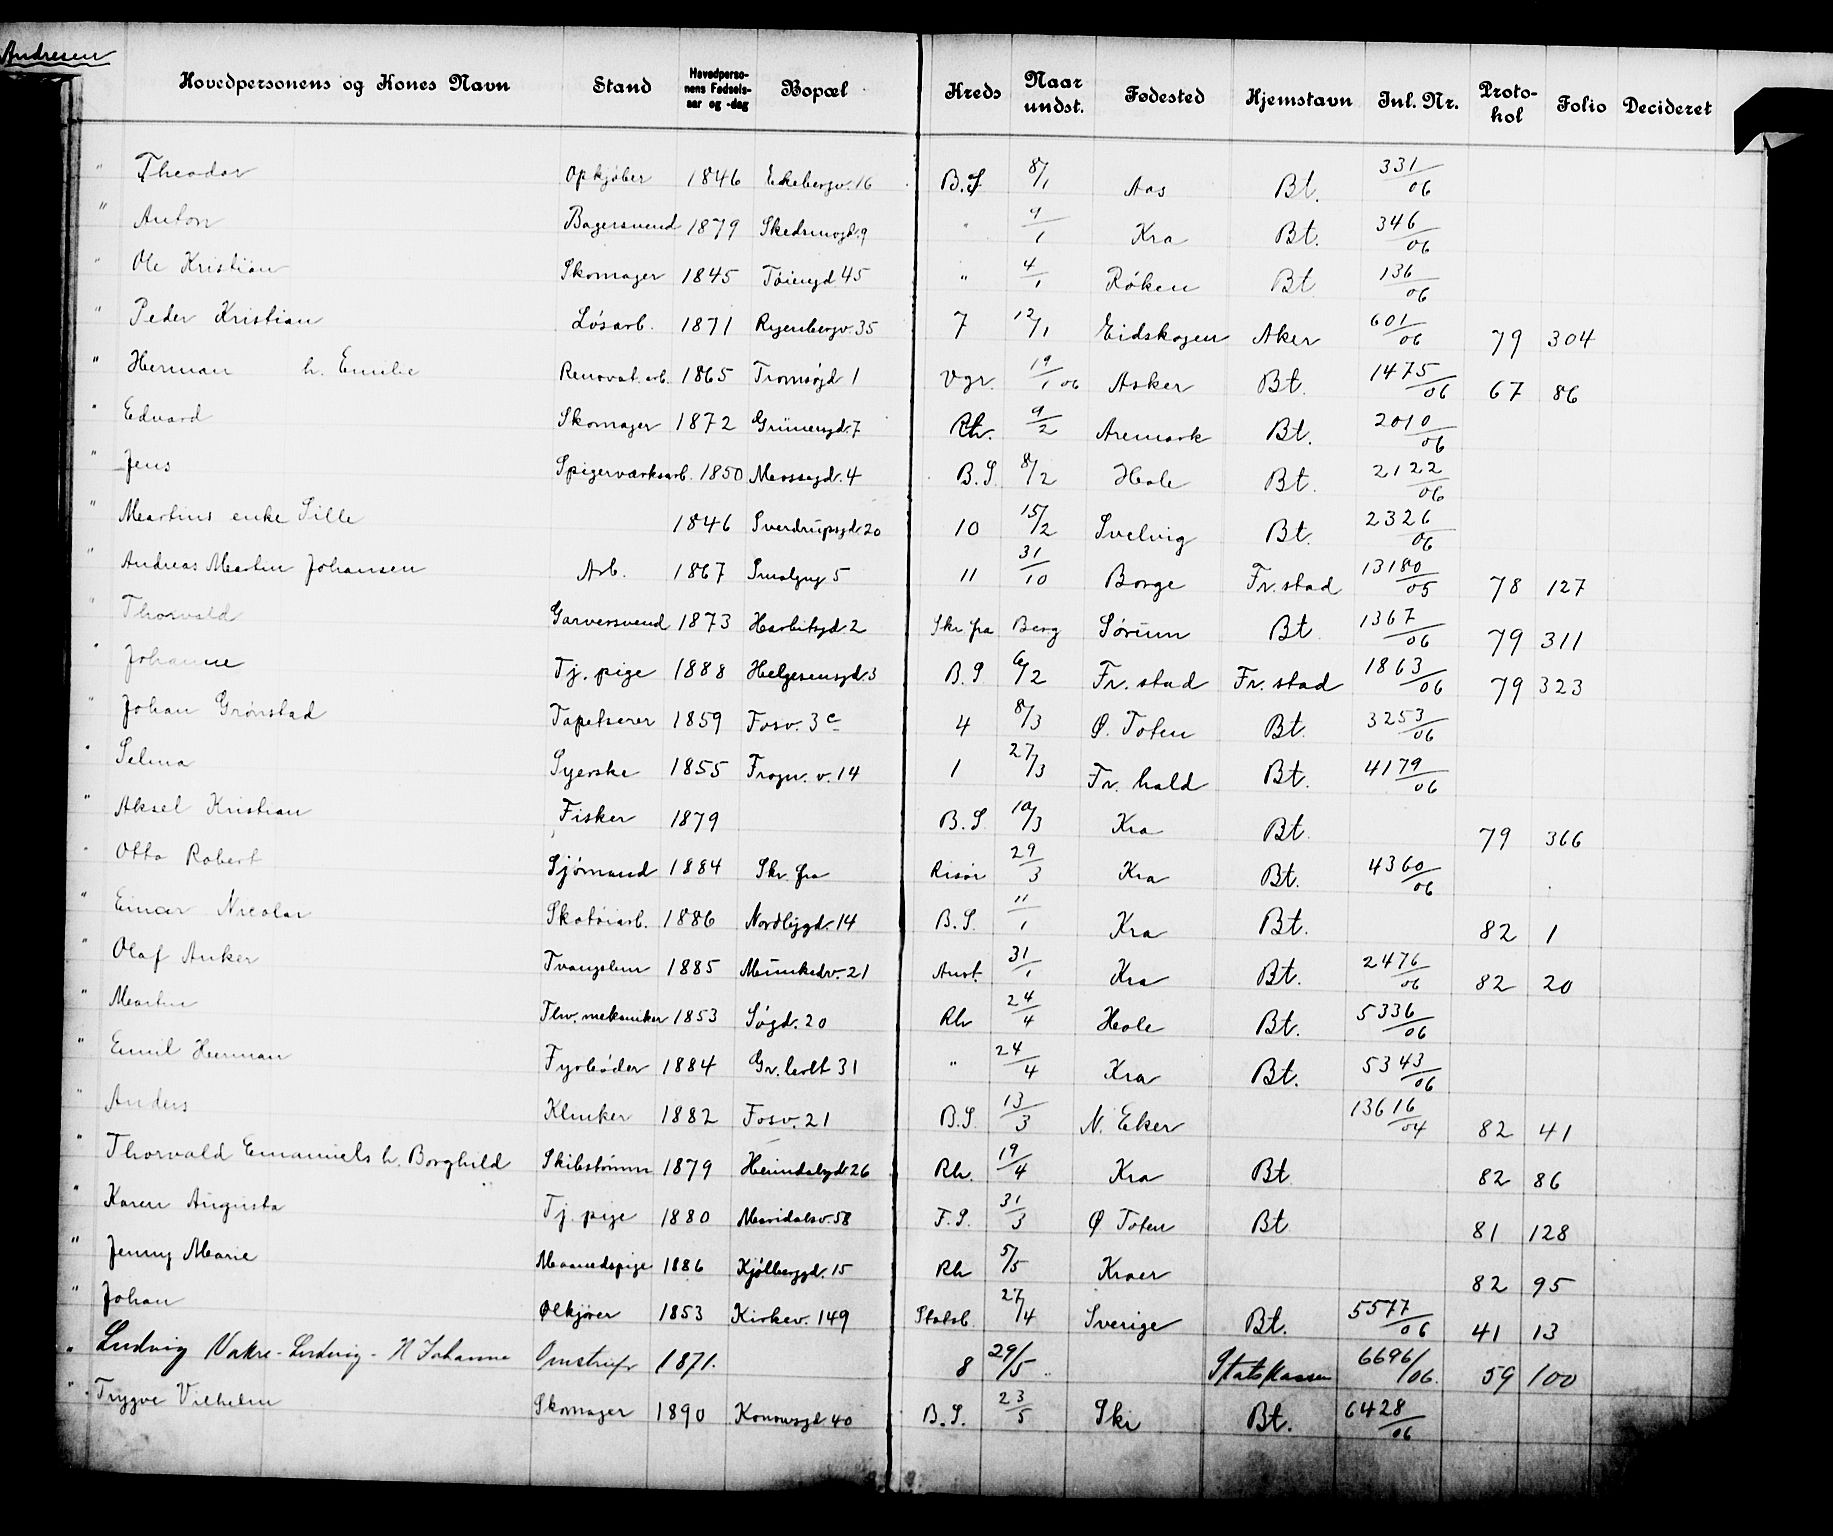 Andresen
Hovedpersonens og Kones Navn Stand Hovedperso-nens Fødsels-aar og -dag Bopæl Kreds Naar undst. Fødested Hjemstavn Inl. Nr. Proto-kol Folio Decideret
" Theodor Opkjøber 1846 Ekebergv. 16 B.S 8/1 Aas Bt. 331/06
" Anton Bagersvend 1879 Skedsmogd. 9 " 9/1 Kra Bt. 346/06
" Ole Kristian Skomager 1845 Tøiengd 45 " 4/1 Røken Bt 136/06
" Peder Kristian Løsarb. 1871 Ryenbergv. 35 7 12/1 Eidskogen Aker 601/06 79 304
" Herman h. Emilie Renovat. arb. 1865 Tromsøgd 1 Vgr. 19/1 06 Asker Bt. 1475/06 67 86
" Edvard Skomager 1872 Grünergd. 7 Rh. 9/2 Aremark Bt. 2010/06
" Jens Spigerværksarb. 1850 Mossegd. 4 B.S. 8/2 Hole Bt. 2122/06
" Martins enke Sille 1846 Sverdrupsgd 20 10 15/2 Svelvig Bt. 2326/06
" Andreas Martin Johansen Arb. 1867 Smalgng 5 11 31/10 Borge Fr.stad 13180/05 78 127
" Thorvald Garversvend 1873 Harbitzgd. 2 Skr. fra Berg Sørum Bt. 1367/06 79 311
" Johanne Tj. pige 1888 Helgesensgd. 3 B.S 6/2 Fr. stad Fr. stad 1863/06 79 323
" Johan Grønstad Tapetserer 1859 Fosv. 3 c 4 8/3 Ø. Toten Bt. 3253/06
" Selma Syerske 1855 Frogn. v. 14 1 27/3 Fr. hald Bt. 4179/06
" Aksel Kristian Fisker 1879 B.S 10/3 Kra Bt. 79 366
" Otto Robert Sjømand 1884 Skr. fra Risør 29/3 Kra Bt. 4360/06
" Einar Nicolai Skotøiarb. 1886 Nordbygd. 14 B.S. 11/1 Kra Bt. 82 1
" Olaf Anker Tvangslem 1885 Munkedv. 21 Anst. 31/1 Kra Bt. 2476/06 82 20
" Martin Thv. mekaniker 1853 Søgd. 20 Rh 24/4 Hole Bt. 5336/06
" Emil Herman Fyrbøder 1884 Gr.leret 31 " 24/4 Kra Bt. 5343/06
" Anders Klinker 1882 Fosv. 21 B.S. 13/3 N. Eker 13616/04 82 41
" Thorvald Emanuels h. Borghild Skibstømm 1879 Heimdalsgd. 26 Rh. 19/4 Kra Bt 82 86
" Karen Augusta Tj. pige 1880 Maridalsv. 58 F.S. 31/3 Ø Toten Bt 81 128
" Jenny Marie Maanedspige 1886 Kjølberggd. 15 Rh 5/5 Kraer 82 95
" Johan Ølkjører 1853 Kirkev. 149 Statsb. 27/4 Sverige Bt. 5577/06 41 13
" Ludvig 1871. 8 29/5 Statskassen 6696/06. 59 100
" Trygve Vilhelm Skomager 1890 Konowsgd 40 B.S. 23/5 Ski Bt. 6428/06